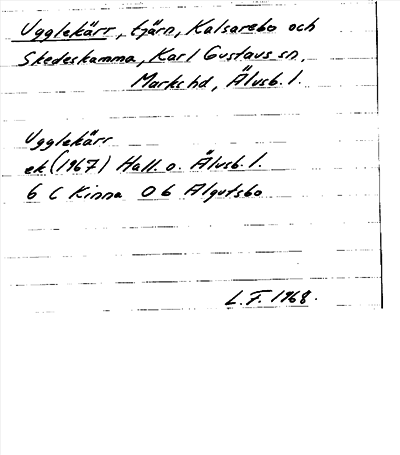 Ugglekärr, tjärn, Kalsarebo och
Skedeskamma, Karl Gustavs sn,
Marks hd, Älvsb. l.
Ugglekärr
ek (1967) Hall. o. Älvsb. l.
6 C Kinna 0 b Algutsbo
L. F. 1968.